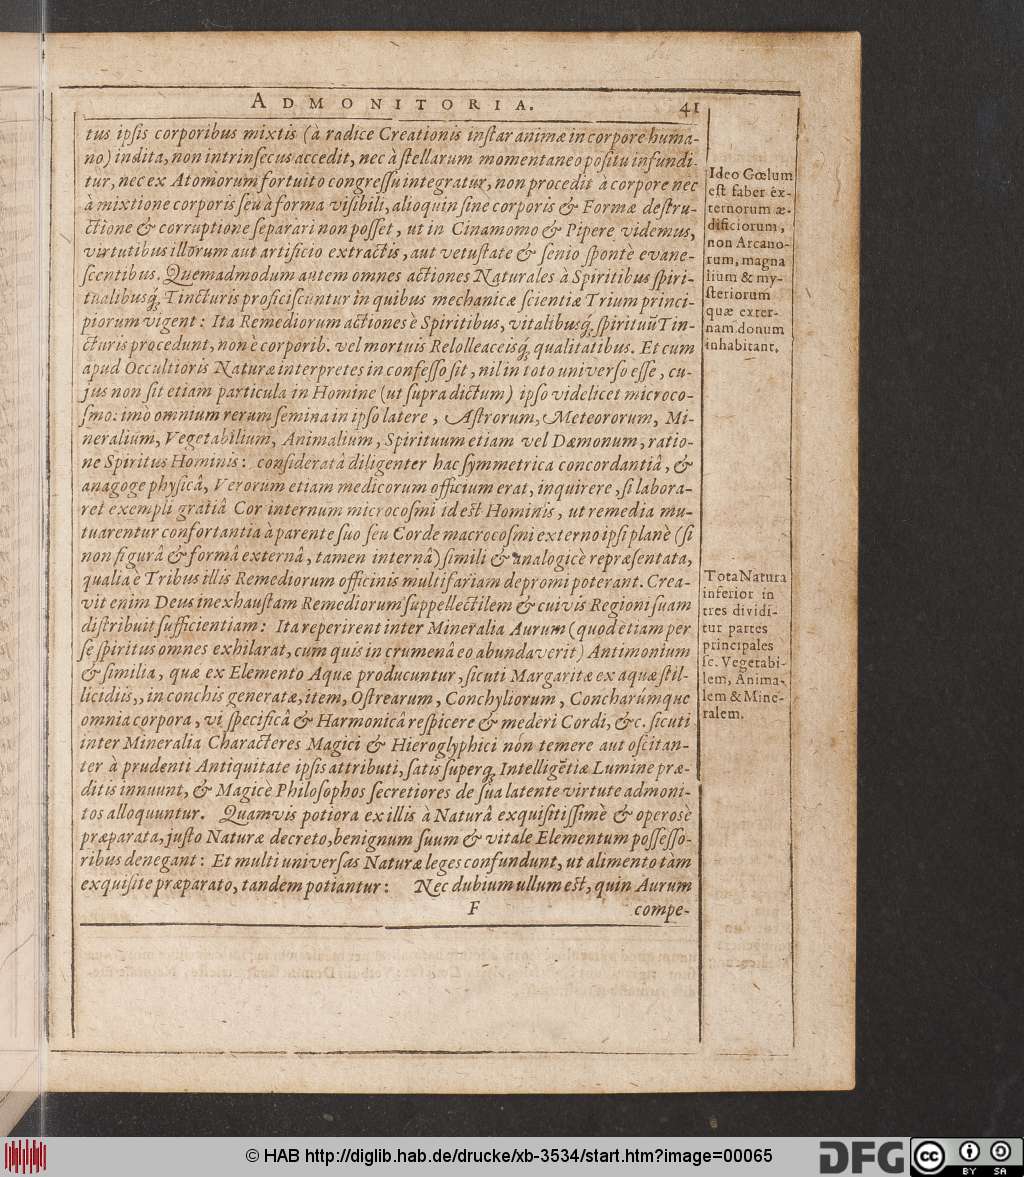 ADMONITORIA. 41
tus ipsis corporibus mixtis (à radice Creationis instar animæ in corpore huma-
no) indita, non intrinsecus accedit, nec à stellarum momentaneo positu infundi-
tur, nec ex Atomorum fortuito congressu integratur, non procedit à corpore nec
à mixtione corporis seu à forma visibili, alioquin sine corporis & Formæ destru-
ctione & corruptione separari non posset, ut in Cinamomo & Pipere videmus,
virtutibus illorum aut artificio extractis, aut vetustate & senio spontè evane-
scentibus. Quemadmodum autem omnes actiones Naturales à Spiritibus spiri-
tualibusq́; Tincturis proficiscuntur in quibus mechanicæ scientiæ Trium princi-
piorum vigent: Ita Remediorum actiones è Spiritibus, vitalibusq́; spirituũ Tin-
cturis procedunt, non è corporib. vel mortuis Relolleaceisq́; qualitatibus. Et cum
apud Occultioris Naturæ interpretes in confesso sit, nil in toto universo esse, cu-
jus non sit etiam particula in Homine (ut supra dictum) ipso videlicet microco-
smo: imò omnium rerum semina in ipso latere, Astrorum, Meteororum, Mi-
neralium, Vegetabilium, Animalium, Spirituum etiam vel Dæmonum, ratio-
ne Spiritus Hominis: consideratâ diligenter hac symmetrica concordantiâ, &
anagoge physicâ, Verorum etiam medicorum officium erat, inquirere, si labora-
ret exempli gratiâ Cor internum microcosmi id est Hominis, ut remedia mu-
tuarentur confortantia à parente suo seu Corde macrocosmi externo ipsi planè (si
non figurâ & formâ externâ, tamen internâ) simili & analogicè repræsentata,
qualia è Tribus illis Remediorum officinis multifariam depromi poterant. Crea-
vit enim Deus inexhaustam Remediorum suppellectilem & cuivis Regioni suam
distribuit sufficientiam: Ita reperirent inter Mineralia Aurum (quod etiam per
se spiritus omnes exhilarat, cum quis in crumenâ eo abundaverit) Antimonium
& similia, quæ ex Elemento Aquæ producuntur, sicuti Margaritæ ex aquæ stil-
licidiis,, in conchis generatæ, item, Ostrearum, Conchyliorum, Concharumque
omnia corpora, vi specificâ & Harmonicâ respicere & mederi Cordi, &c. sicuti
inter Mineralia Characteres Magici & Hieroglyphici non temere aut oscitan-
ter à prudenti Antiquitate ipsis attributi, satis superq́; Intelligẽtiæ Lumine præ-
ditis innuunt, & Magicè Philosophos secretiores de sua latente virtute admoni-
tos alloquuntur. Quamvis potiora ex illis à Naturâ exquisitissimè & operosè
præparata, justo Naturæ decreto, benignum suum & vitale Elementum possesso-
ribus denegant: Et multi universas Naturæ leges confundunt, ut alimento tàm
exquisite præparato, tandem potiantur: Nec dubium ullum est, quin Aurum
F compe-
Ideo Gœlum
est faber ex-
ternorum æ-
dificiorum,
non Arcano-
rum, magna
lium & my-
steriorum
quæ exter-
nam donum
inhabitant.
Tota Natura
inferior in
tres dividi-
tur partes
principales
sc. Vegetabi-
lem, Anima-
lem & Mine-
ralem.
© HAB http://diglib.hab.de/drucke/xb-3534/start.htm?image=00065
DFG
cc BY SA